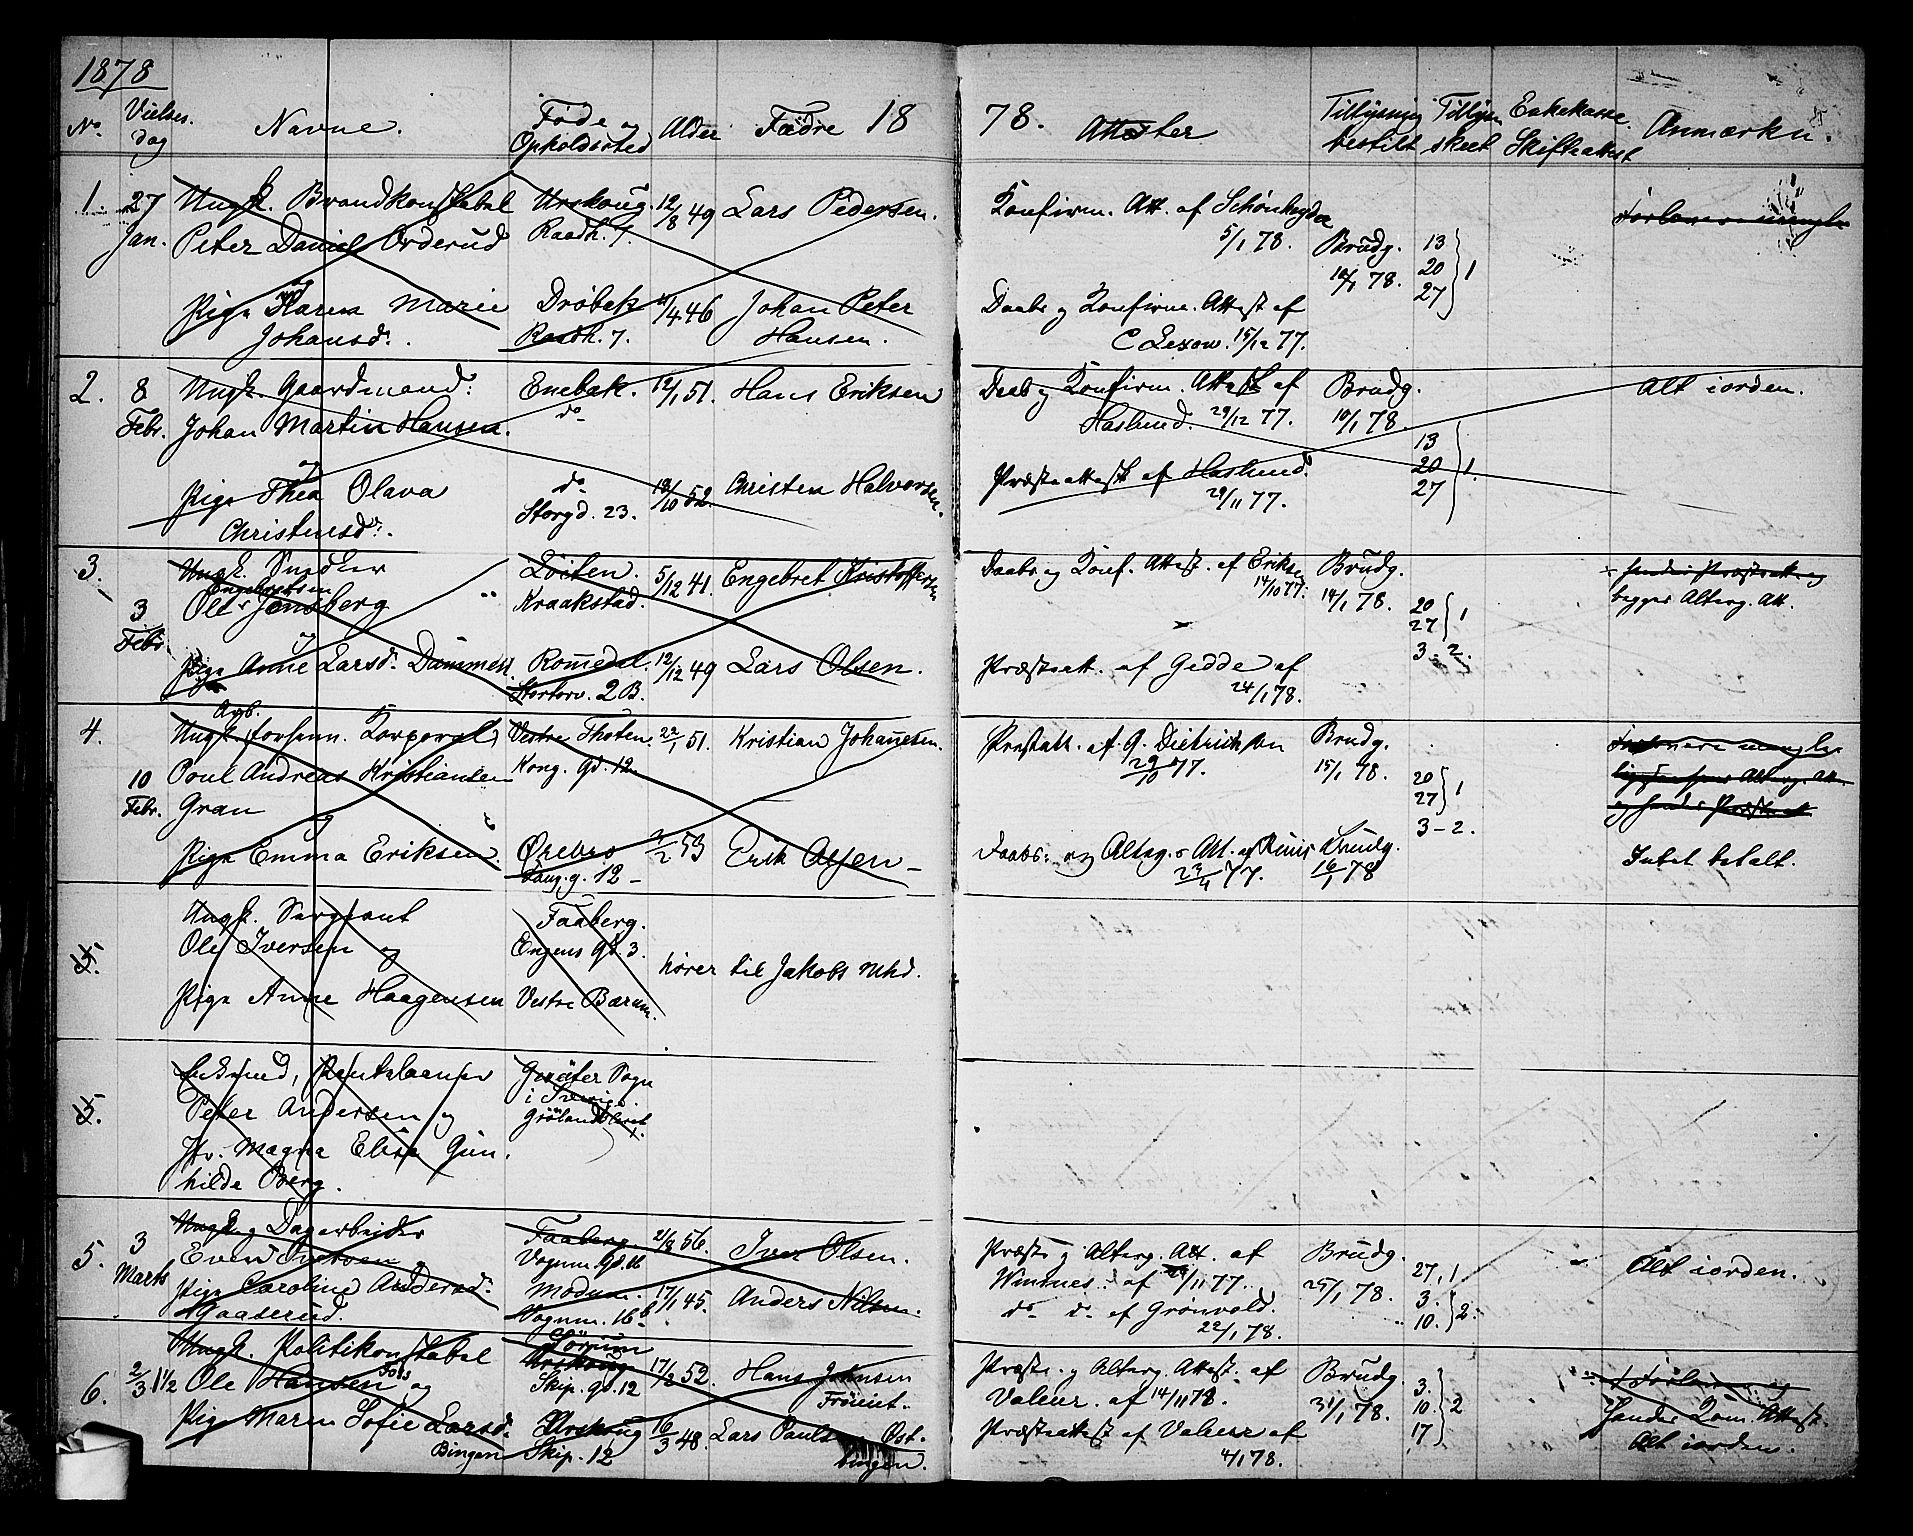 1878
No. Vielses dag Navne. Føde og Opholdssted Alder Fædre 18
78. Attester Tillysning bestilt Tillysn skeet Enkekasse. Skifteattest Anmærkn.
1. 27 Jan. Ungk. Brandkonstabel Urskoug. 12/8 49 Lars Pedersen.
Peter Daniel Orderud Raadh. 7.
og
Pige Karen Marie Drøbak 11/4 46 Johan Peter
Johansd. Raadh. 7. Hansen.
Konfirm. Att. af Schönheyder
5/1 78. Brudg. 13
10/1 78. 20 } 1
27
Daabs og Konfirm. Attest af
C Lexow. 15/12 77.
2. 8 Febr. Ungk. Gaardmand Enebak. 12/1 51. Hans Eriksen
Johan Martin Hansen. do
og
Pige Thea Olava do 18/10 52. Christen Halvorsen.
Christensd. Storgd. 23.
Daabs og Konfirm. Attest af Brudg. Alt iorden.
Haslund. 29/12 77. 10/1 78.
13
Præsteattest af Haslund. 20 } 1.
29/11 77. 27
3. 3 Febr. Ungk. Snedker Löiten. 5/12 41. Engebret Kristoffersen
Engebretsen
Ole Jønsberg " Kraakstad.
og
Pige Anne Larsd. Dammen. Romedal. 12/12 49 Lars Olsen.
Stortorv. 2 B.
Daabs og Konf. Attest. af Eriksen Brudg.
14/10 77. 14/1 78. 20
27 } 1
3. 2.
begges Alterg. Att.
Præsteatt. af Gedde af
24/1 78.
4. 10 Febr. Arb.
Ungk. forhenn. Korporal, Vestre Thoten. 22/1 51. Kristian Johannesen.
Poul Andreas Kristiansen Kong. gd. 12.
Gran
og
Pige Emma Eriksen. Ørebro 2/2 53 Erik Olsen
Toug. g. 12
Prestatt. af G. Dietrichson Brudg.
29/10 77. 15/1 78. 20
27 } 1
3-2.
Daabs- og Alterg. Att. af Brudg. Intet betalt.
23/4 77. 16/1 78
5. Ungk. Sergeant Faaberg.
Ole Iversen og Engens Gd. 3. hører til Jakobs Mhd.
Pige Anne Haagensen Vestre Bærum.
5. Enkemd, Sogn
Peter Andersen og i Sverig.
Jfr. Magna Elise Gun Grölandsleret.
hilde Berg.
5. 3 Marts Ungk. Dagarbeider Faaberg. 2/8 56. Iver Olsen.
Even Iversen Vognm. Gd. 16
Pige Caroline Andersd. Modum. 17/1 45. Anders Nilsen.
Gaaserud. Vognm. 16
Præste og Alterg. Att. af Brudg. 27, 1 Alt iorden.
Wimnes. af 11 77. 25/1 78. 3.
do do af Grønvold. 10. } 2.
22/1 78.
6. 2/3 1½ Ungk. Politikonstabel Sörum
Ole Hansen og Urskoug 17/2 52. Hans Johnsen
Skip. gd. 12 Frøieit.
Pige Maren Sofie Larsd. Urskoug 16/3 48. Lars Pauls Øst-
Bingen Skip. 12 bingen.
Præste og Alterg. Attest. af Brudg. 3.
Valeur. af 14/11 78. 31/1 78. 10. } 2
Præsteattest af Valeur af 17
4/1 78. Alt iorden.